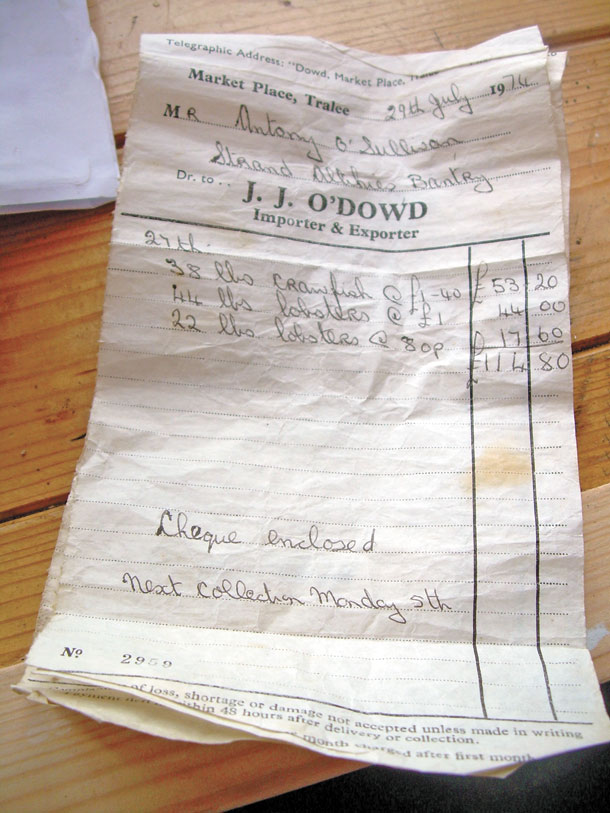 Telegraphic Address: "Dowd, Market Place, Tralee
Market Place, Tralee 29th July 1974
MR Antony O'Sullivan
Strand Bantry
Dr. to ..
J. J. O'DOWD
Importer & Exporter
27th.
38 lbs crawfish @ £1-40 £ 53 20
44 lbs lobsters @ £1 44 00
22 lbs lobsters @ 80p 17 60
£114 80
Cheque enclosed
Next Collection Monday 5th
No 2959
of loss, shortage or damage not accepted unless made in writing
within 48 hours after delivery or collection.
month charged after first month